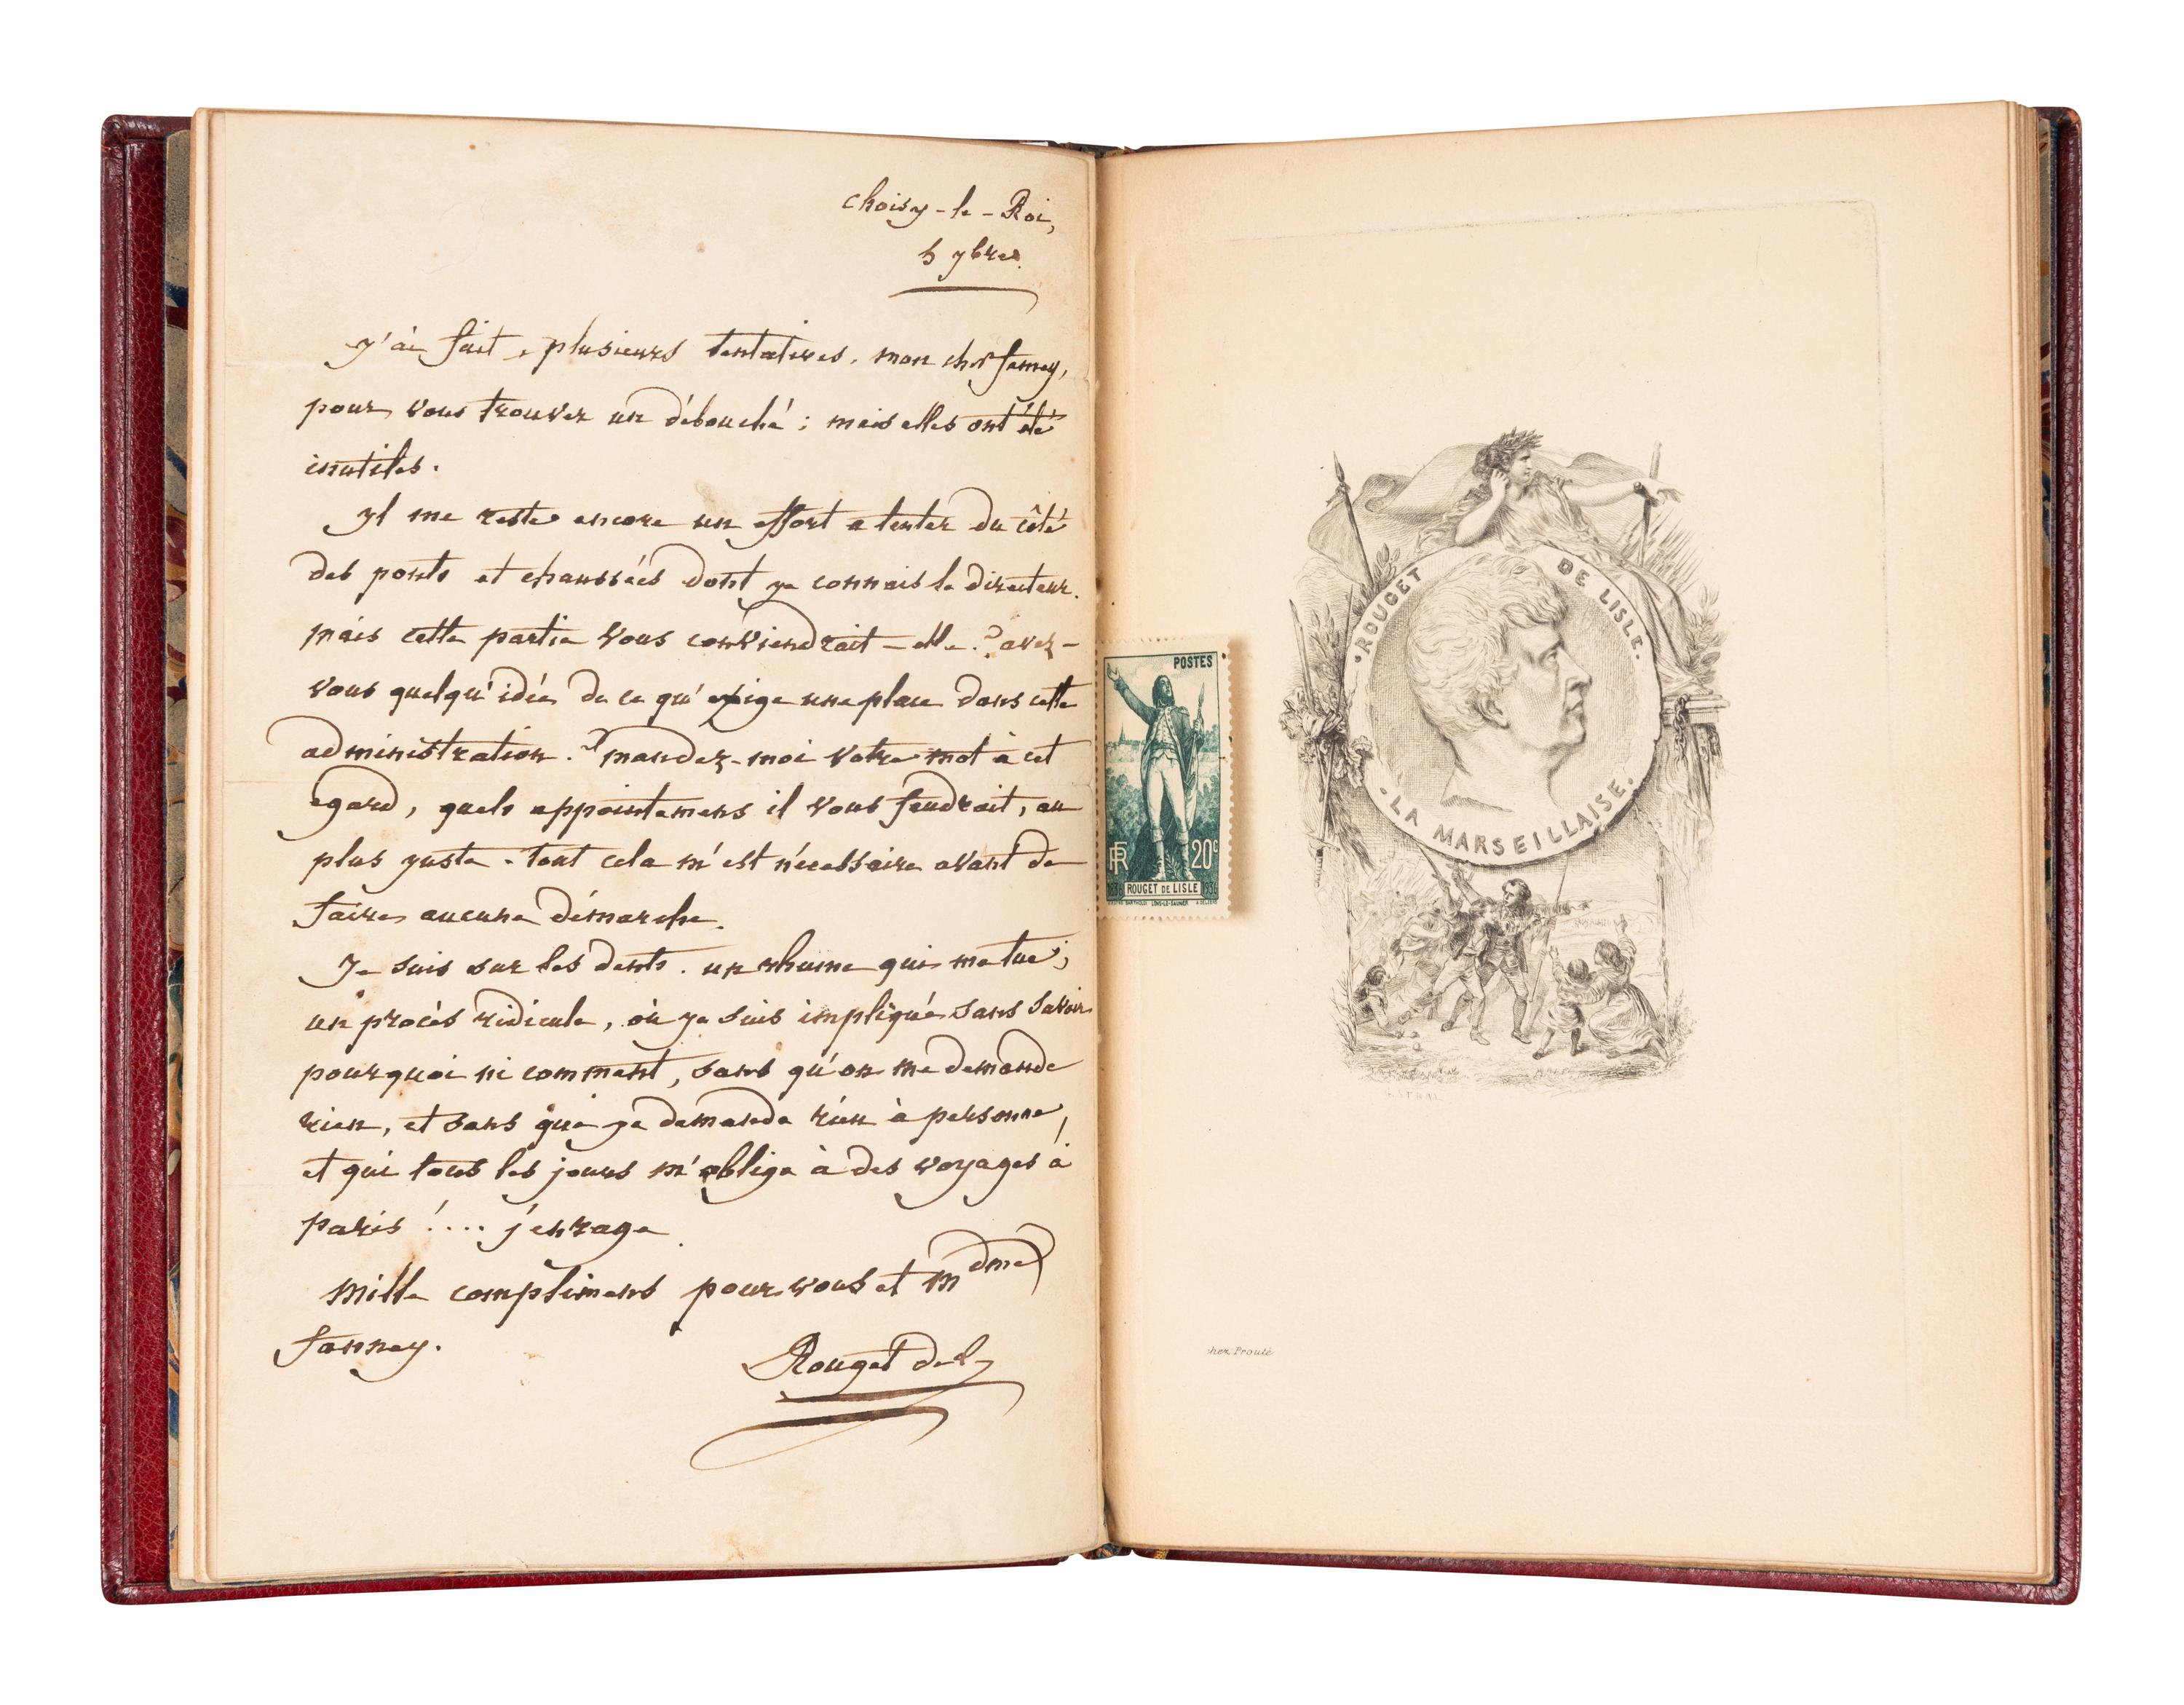 Choisy-le-Roi,
5 7bre.
J'ai fait plusieurs tentatives, mon cher fanney,
pour vous trouver un débouché ; mais elles ont été
inutiles.
yl me reste encore un effort a tenter du côté
des ponts et chaussées dont je connais le directeur.
mais cette partie vous conviendrait-elle ? avez-
vous quelqu'idée de ce qu'exige une place dans cette
administration ? mandez-moi votre mot à cet
egard, quels appointemens il vous faudrait, au
plus juste. tout cela m'est nécessaire avant de
faire aucune démarche.
Je suis sur les dents. un rhume qui me tue ;
un procès ridicule, où je suis impliqué sans savoir
pourquoi ni comment, sans qu'on me demande
rien, et sans que je demande rien à personne,
et qui tous les jours m'oblige à des voyages à
paris !.... j'enrage.
mille complimens pour vous et mdme
fanney.
Rouget del
POSTES
RF
20c
1836 ROUGET DE LISLE 1936
ROUGET DE LISLE.
LA MARSEILLAISE.
chez Prouté